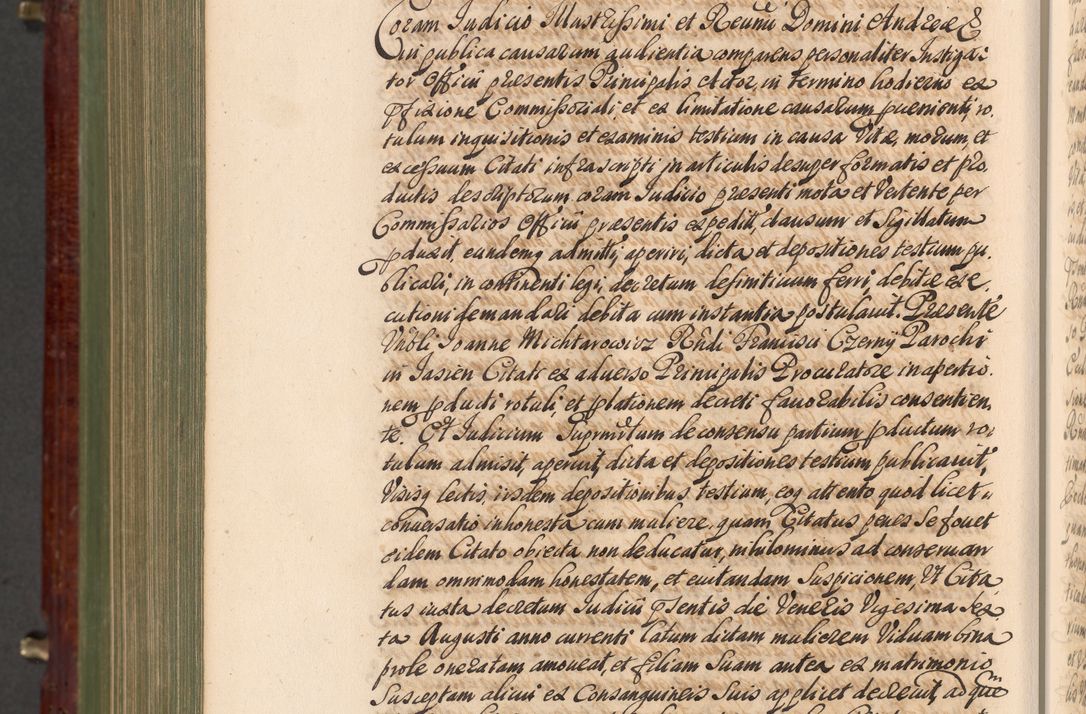 Coram Judicio Illustrissimi et Reuñu Domini Andreæ &
in publica causarum audientia comparens personaliter Instiga:
tor Officii præsentis Principalis Actor, in termino hodierno ex
pfixione Commissoriali, et ex limitatione causarum pueniente, ro
tulum inquisitionis et examinis testium in causa Vitæ, morum, et
excessuum Citati infrascripti in articulis desuper formatis et pro
ductis descriptorum coram Judicio præsenti mota et Vertente per
Commissarios Officii præsentis expedit, clausum et Sigillatum
pduxit, eundemq admitti, aperiri, dicta et depositiones testium pu
blicari, in continenti legi, decretum definitiuum ferri, debitæ exe
cutioni demandari debita cum instantia postulauit. Præsente
Vñbli Joanne Michtarowicz Rñdi Francisci Czerny Parochi
in Jasien Citati ex aduerso Principalis Procuratore in apertio
nem pducti rotuli, et platonem decreti fauorabilis consentien
te. Et Judicium Suprmtum de consensu partium pductum ro
tulum admisit, aperuit, dicta et depositiones testium publicauit,
Visisq lectis, iisdem depositionibus testium, eoq attento quod licet
conuersatio inhonesta cum muliere, quam Citatus penes Se fouet
eidem Citato obiecta non deducatur, nihilominus ad conseruan
dam omnimodam honestatem, et euitandam Suspicionem, Ut Cita
tus iuxta decretum Judicii psentis die Veneris Vigesima Sex
ta Augusti anno currenti latum dictam mulierem Viduam bina
prole oneratam amoueat, et filiam Suam antea ex matrimonio
Susceptam alicui ex Consanguineis Suis applicet decreuit, ad